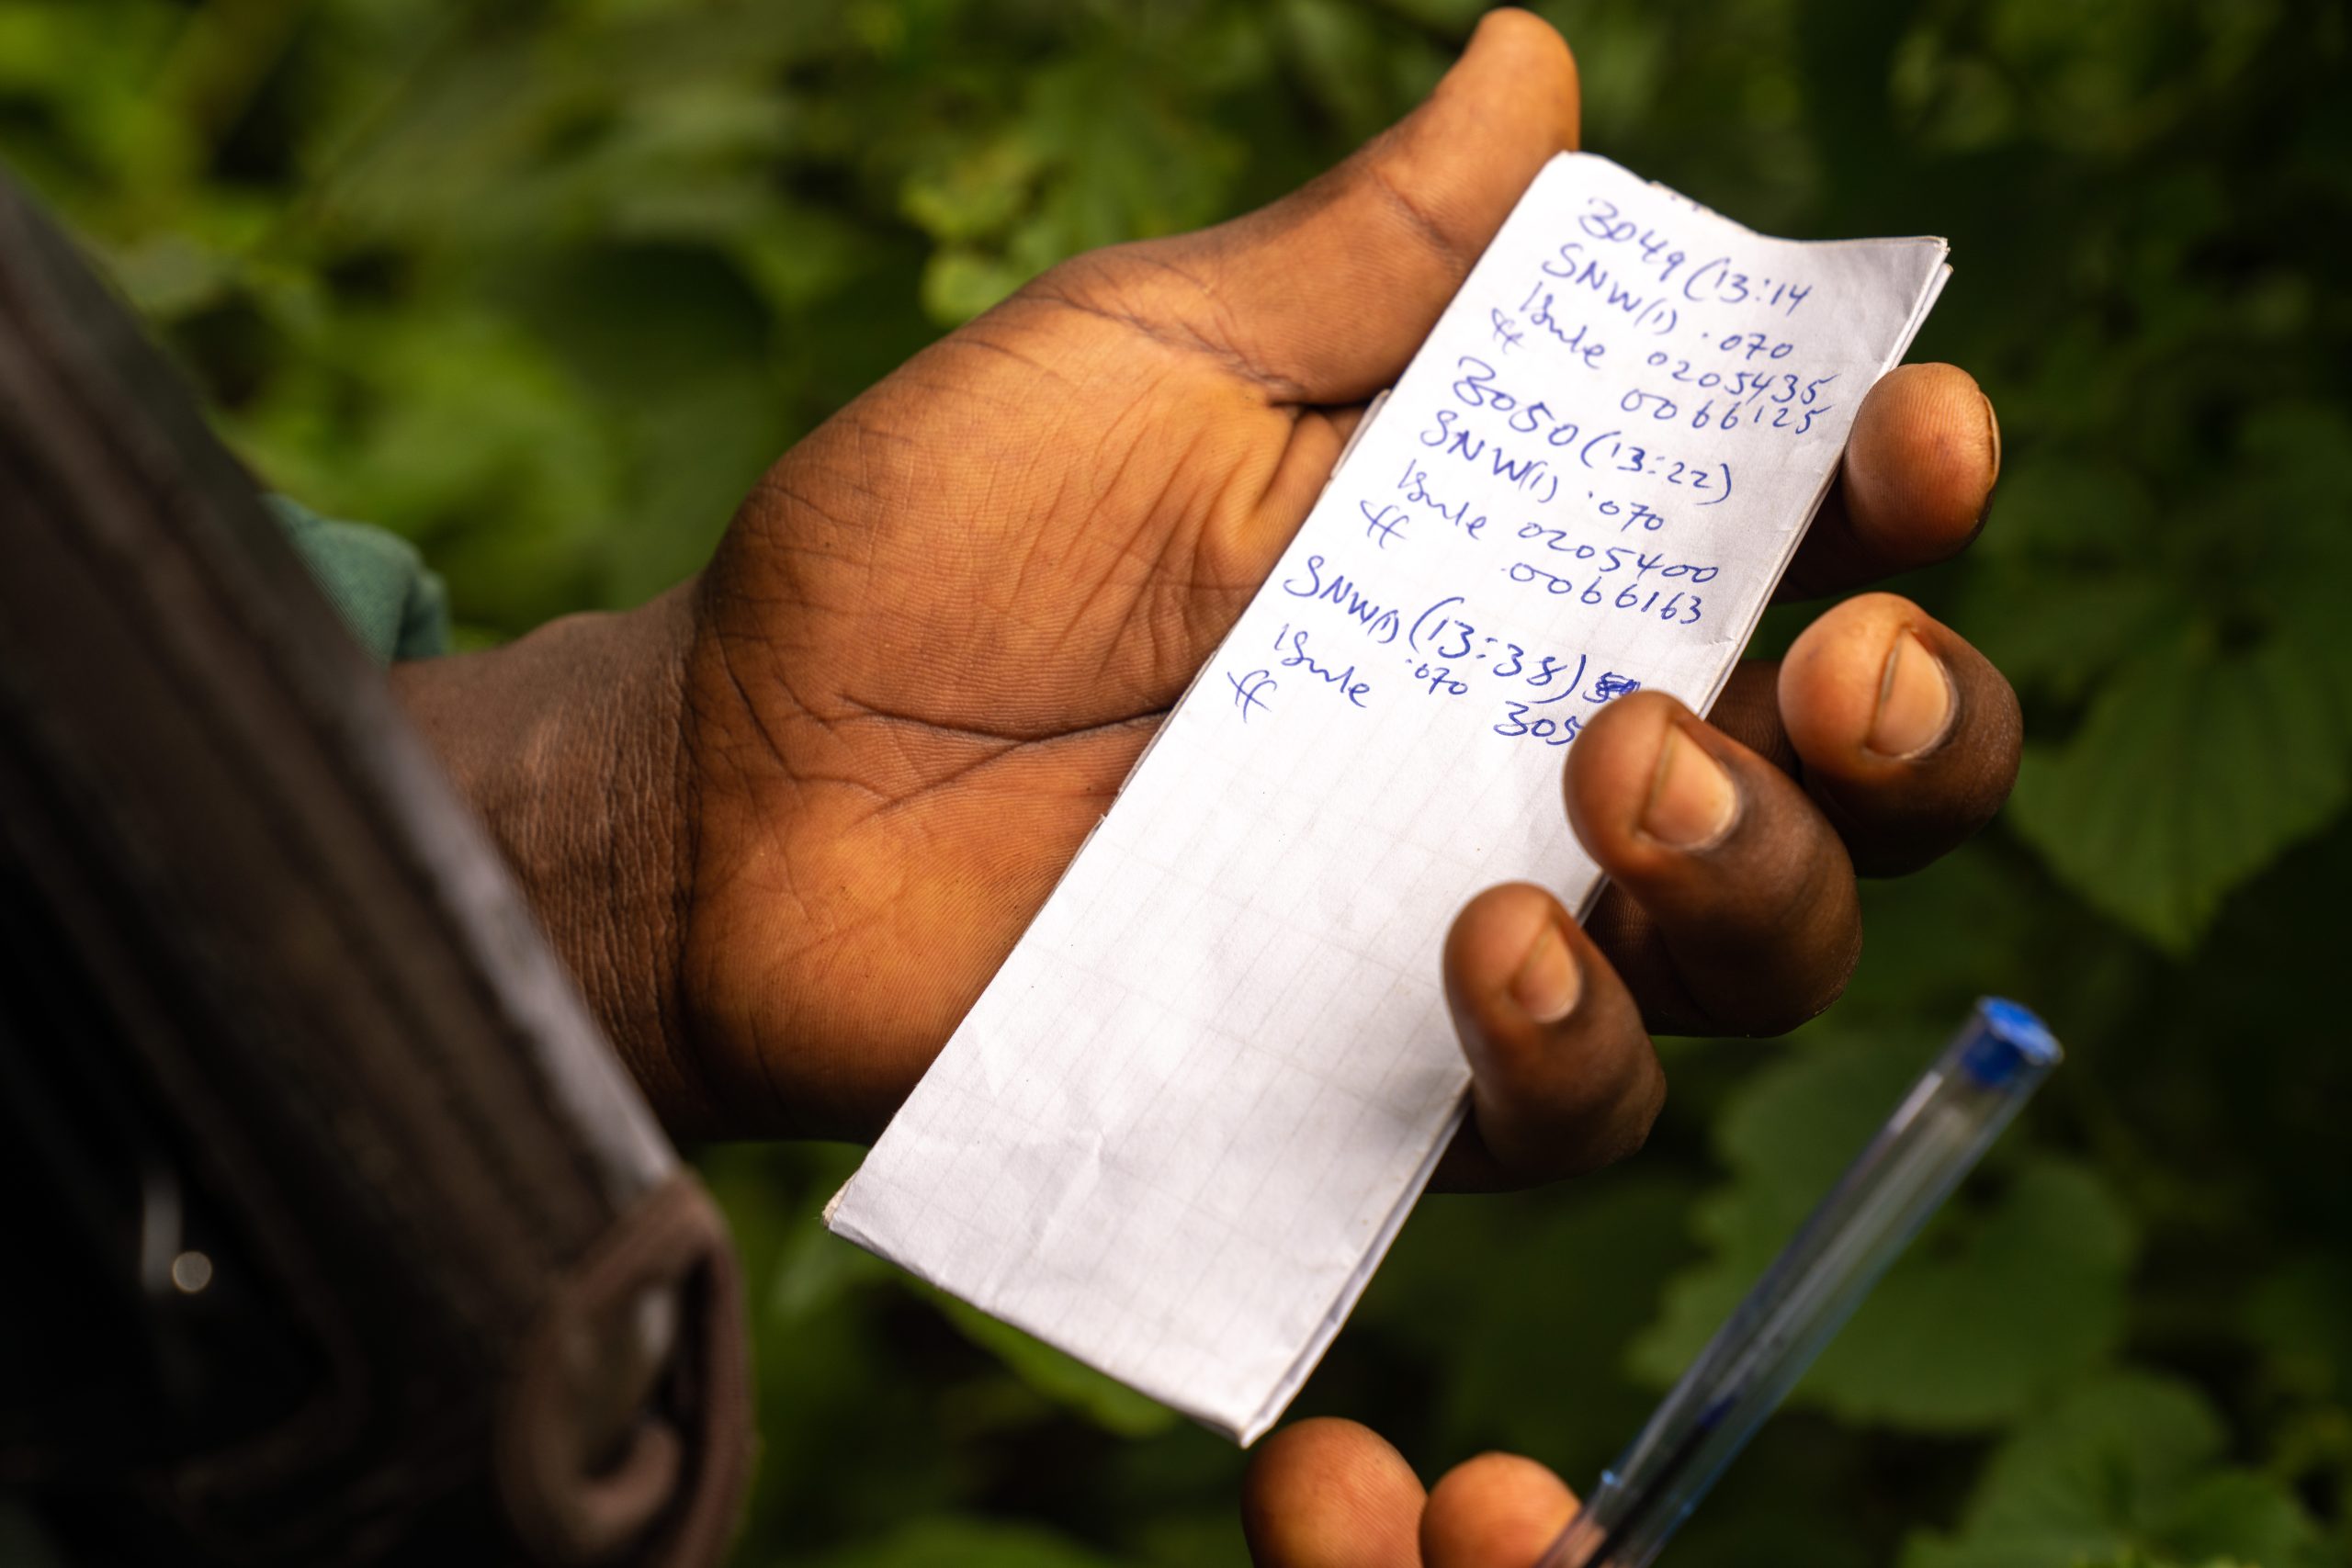 3049 (13:14
SNW(1) .070
0205435
ff 0066125
3050 (13:22)
SNW(1) .070
0205400
ff .0066163
SNW(1) (13:38)
.070
ff 305